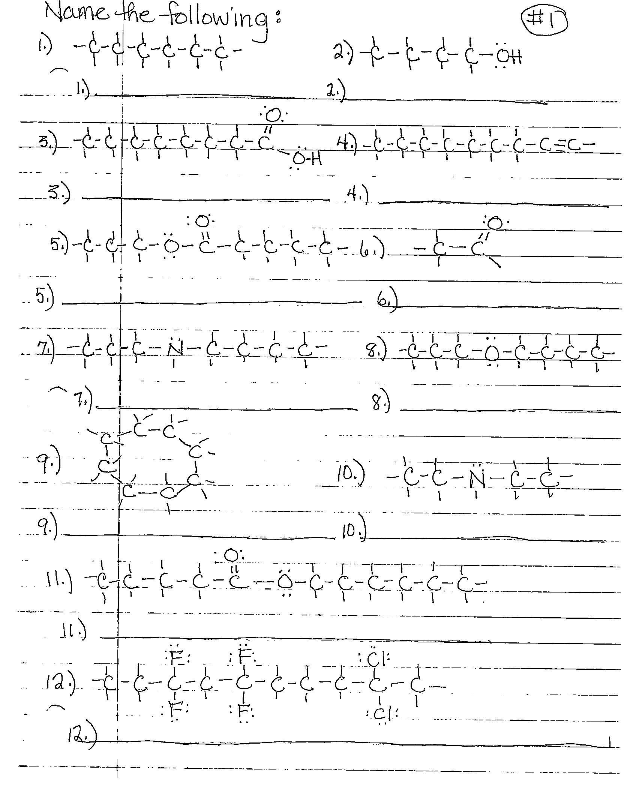 Name the following: #1
1.) -C-C-C-C-C-C- 2.) -C-C-C-C-OH
1.) 2.)
:O:
3.) -C-C-C-C-C-C-C-C 4.) -C-C-C-C-C-C-C-C≡C-
O-H
3.) 4.)
:O: :O:
5.) -C-C-C-O-C-C-C-C-C- 6.) -C-C
5.) 6.)
7.) -C-C-C-N-C-C-C-C- 8.) -C-C-C-O-C-C-C-C-
7.) 8.)
C-C
C C
9.) C C 10.) -C-C-N-C-C-
C-C
9.) 10.)
:O:
11.) -C-C-C-C-C-O-C-C-C-C-C-C-
11.)
:F: :F: :Cl:
12.) -C-C-C-C-C-C-C-C-C-C-
:F: :F: :Cl:
12.)